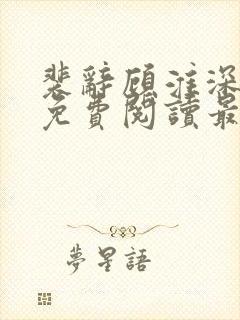 裴辭顧淮深
免費閱讀最
夢星語